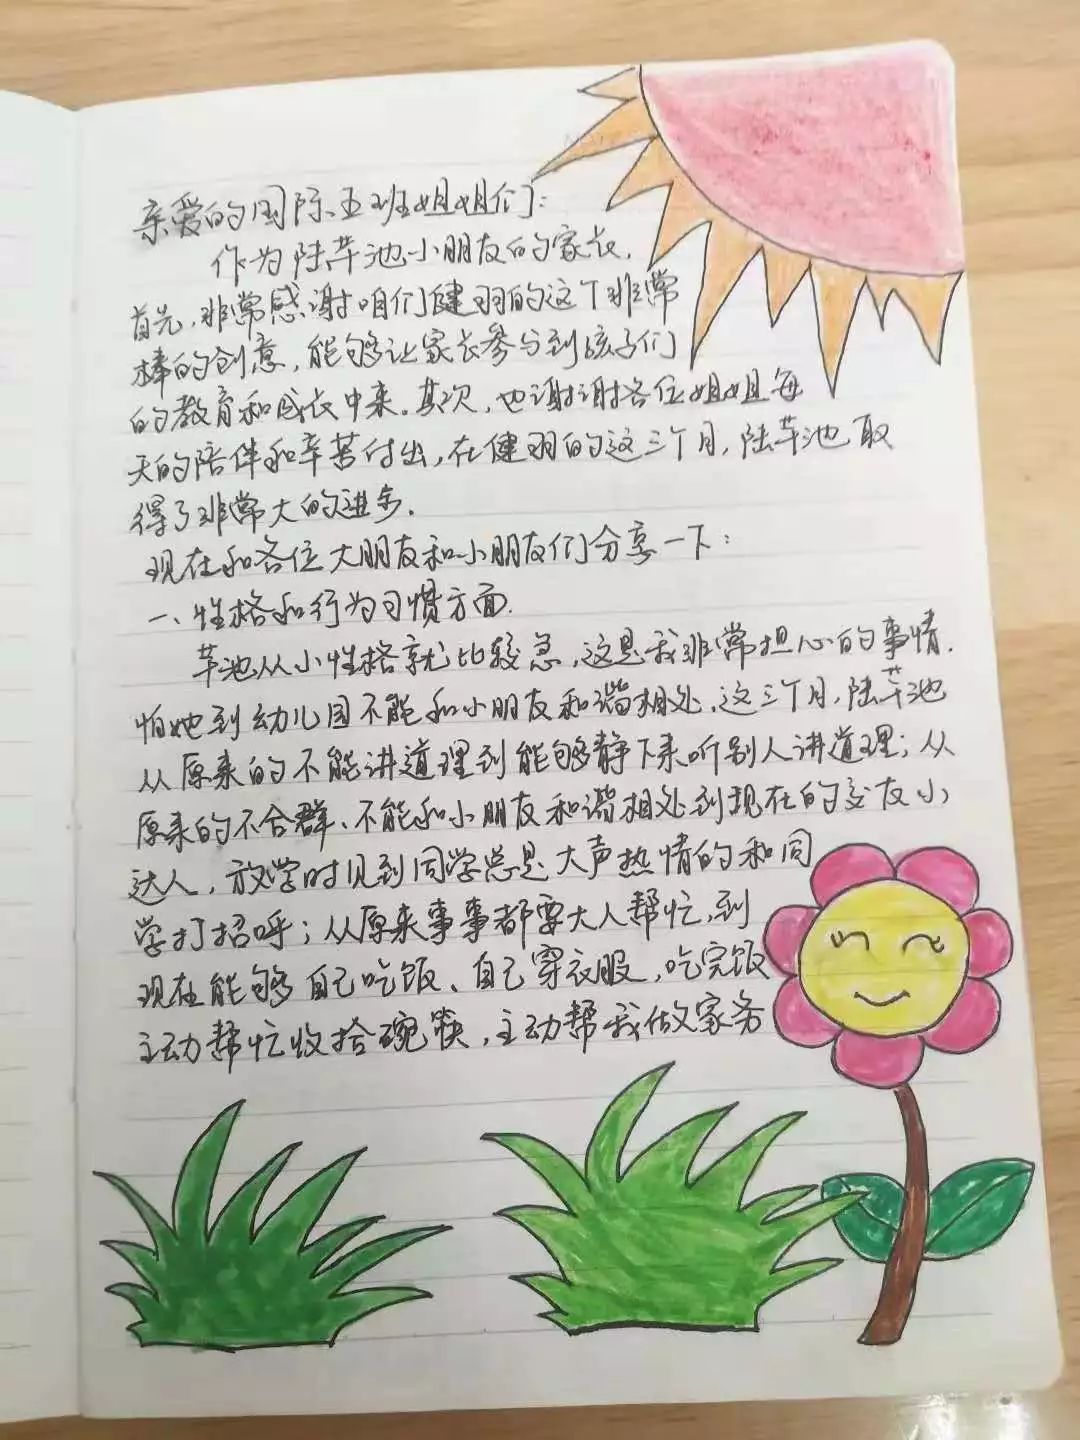 亲爱的国际五班姐姐们：
作为陆芊池小朋友的家长，
首先，非常感谢咱们健羽的这个非常
棒的创意，能够让家长参与到孩子们
的教育和成长中来。其次，也谢谢各位姐姐每
天的陪伴和辛苦付出，在健羽的这三个月，陆芊池取
得了非常大的进步。
现在和各位大朋友和小朋友们分享一下：
一、性格和行为习惯方面。
芊池从小性格就比较急，这是我非常担心的事情，
怕她到幼儿园不能和小朋友和谐相处，这三个月，陆芊池
从原来的不能讲道理到能够静下来听别人讲道理；从
原来的不合群、不能和小朋友和谐相处到现在的交友小
达人，放学时见到同学总是大声热情的和同
学打招呼；从原来事事都要大人帮忙，到
现在能够自己吃饭、自己穿衣服，吃完饭
主动帮忙收拾碗筷，主动帮我做家务